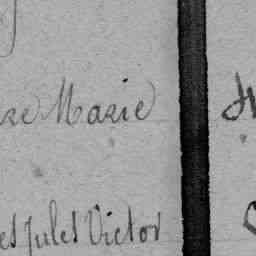 re Marie
es Jules Victor